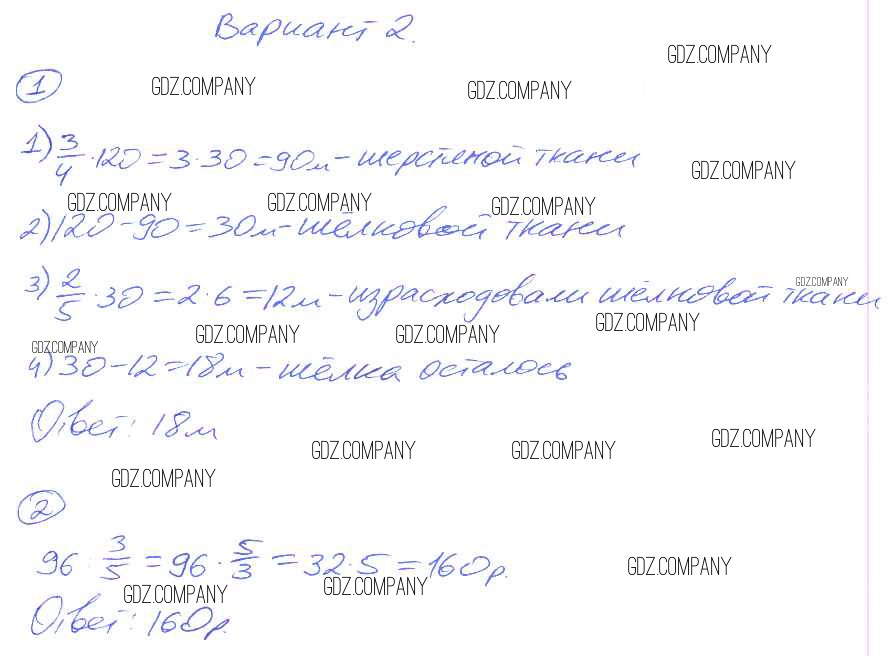 Вариант 2.
GDZ.COMPANY
1 GDZ.COMPANY GDZ.COMPANY
1) 3/4 · 120 = 3 · 30 = 90 м - шерстяной ткани
GDZ.COMPANY
GDZ.COMPANY GDZ.COMPANY GDZ.COMPANY
2) 120 - 90 = 30 м - шёлковой ткани
GDZ.COMPANY
3) 2/5 · 30 = 2 · 6 = 12 м - израсходовали шёлковой ткани
GDZ.COMPANY GDZ.COMPANY GDZ.COMPANY
GDZ.COMPANY
4) 30 - 12 = 18 м - шёлка осталось
Ответ: 18 м
GDZ.COMPANY GDZ.COMPANY GDZ.COMPANY
GDZ.COMPANY
2
96 : 3/5 = 96 · 5/3 = 32 · 5 = 160 р.
GDZ.COMPANY
GDZ.COMPANY GDZ.COMPANY
Ответ: 160 р.